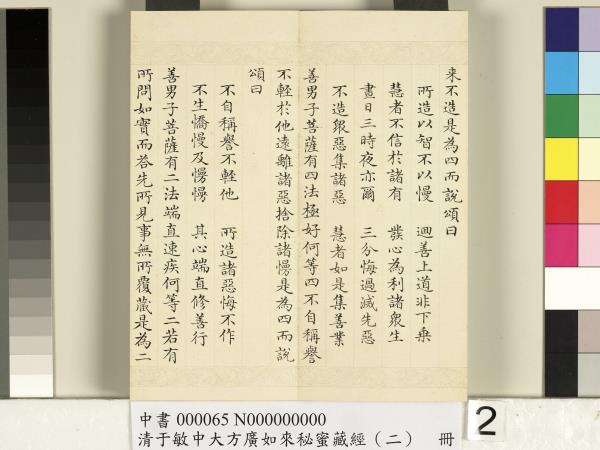 来不造是為四而說頌曰
所造以智不以慢　迴善上道非下乗
慧者不信於諸有　發心為利諸衆生
晝日三時夜亦爾　三分悔過滅先惡
不造衆惡集諸惡　慧者如是集善業
善男子菩薩有四法極好何等四不自稱譽
不輕於他遠離諸惡捨除諸慢是為四而說
頌曰
不自稱譽不輕他　所造諸惡悔不作
不生憍慢及慢慢　其心端直修善行
善男子菩薩有二法端直速疾何等二若有
所問如實而答先所見事無所覆藏是為二
中書 000065 N000000000
清于敏中大方廣如來秘蜜藏經（二）　冊
2